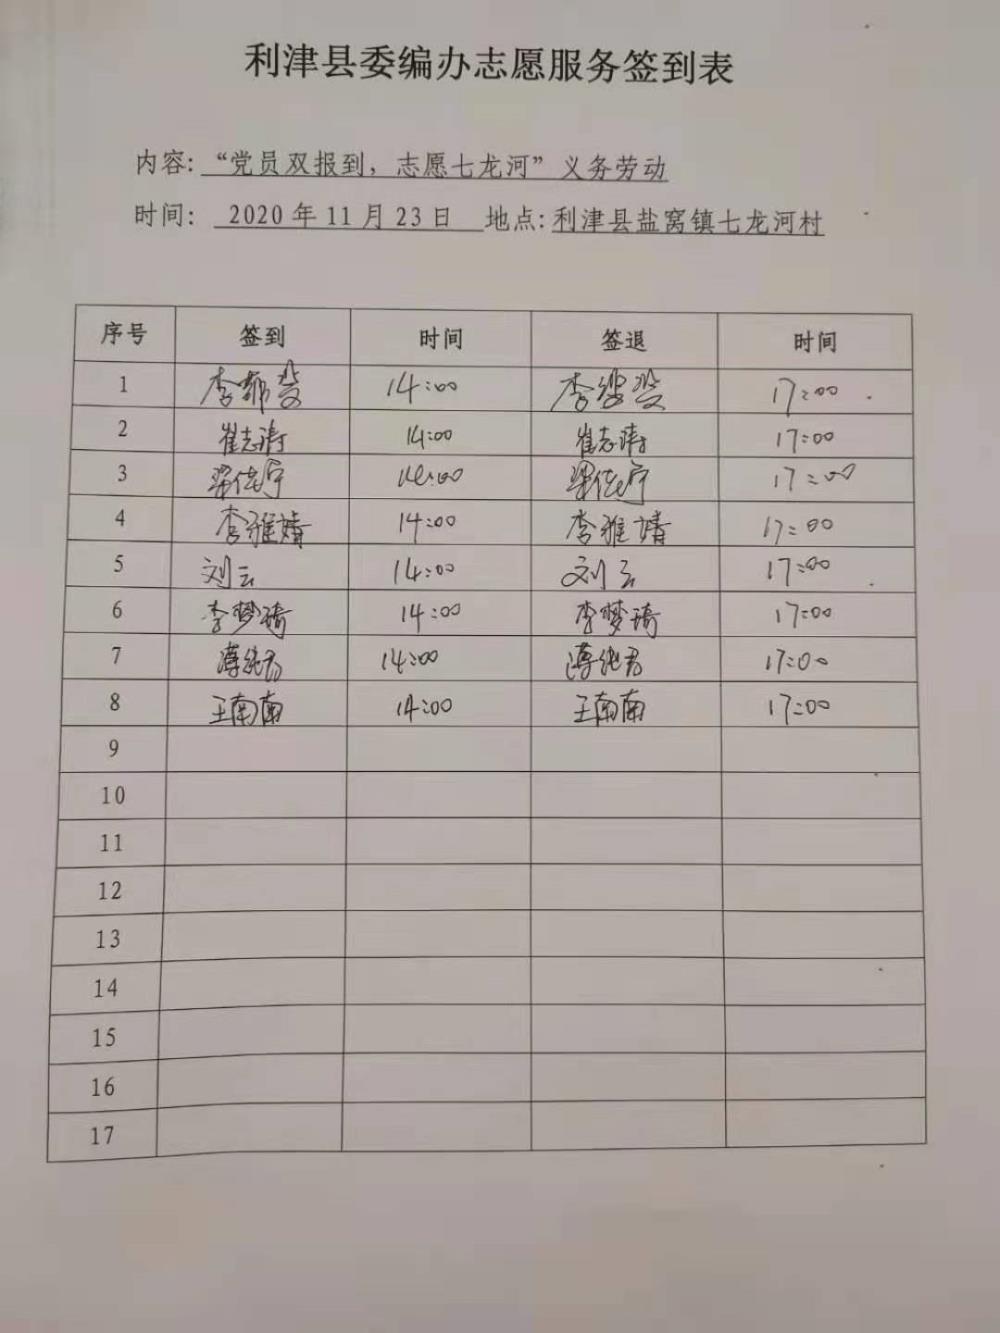 利津县委编办志愿服务签到表
内容：“党员双报到，志愿七龙河”义务劳动
时间： 2020年11月23日 地点：利津县盐窝镇七龙河村
序号 签到 时间 签退 时间
1 14:00 17:00
2 崔志涛 14:00 崔志涛 17:00
3 14:00 17:00
4 李雅婧 14:00 李雅婧 17:00
5 刘云 14:00 刘云 17:00
6 李梦琦 14:00 李梦琦 17:00
7 14:00 17:00
8 王南南 14:00 王南南 17:00
9
10
11
12
13
14
15
16
17